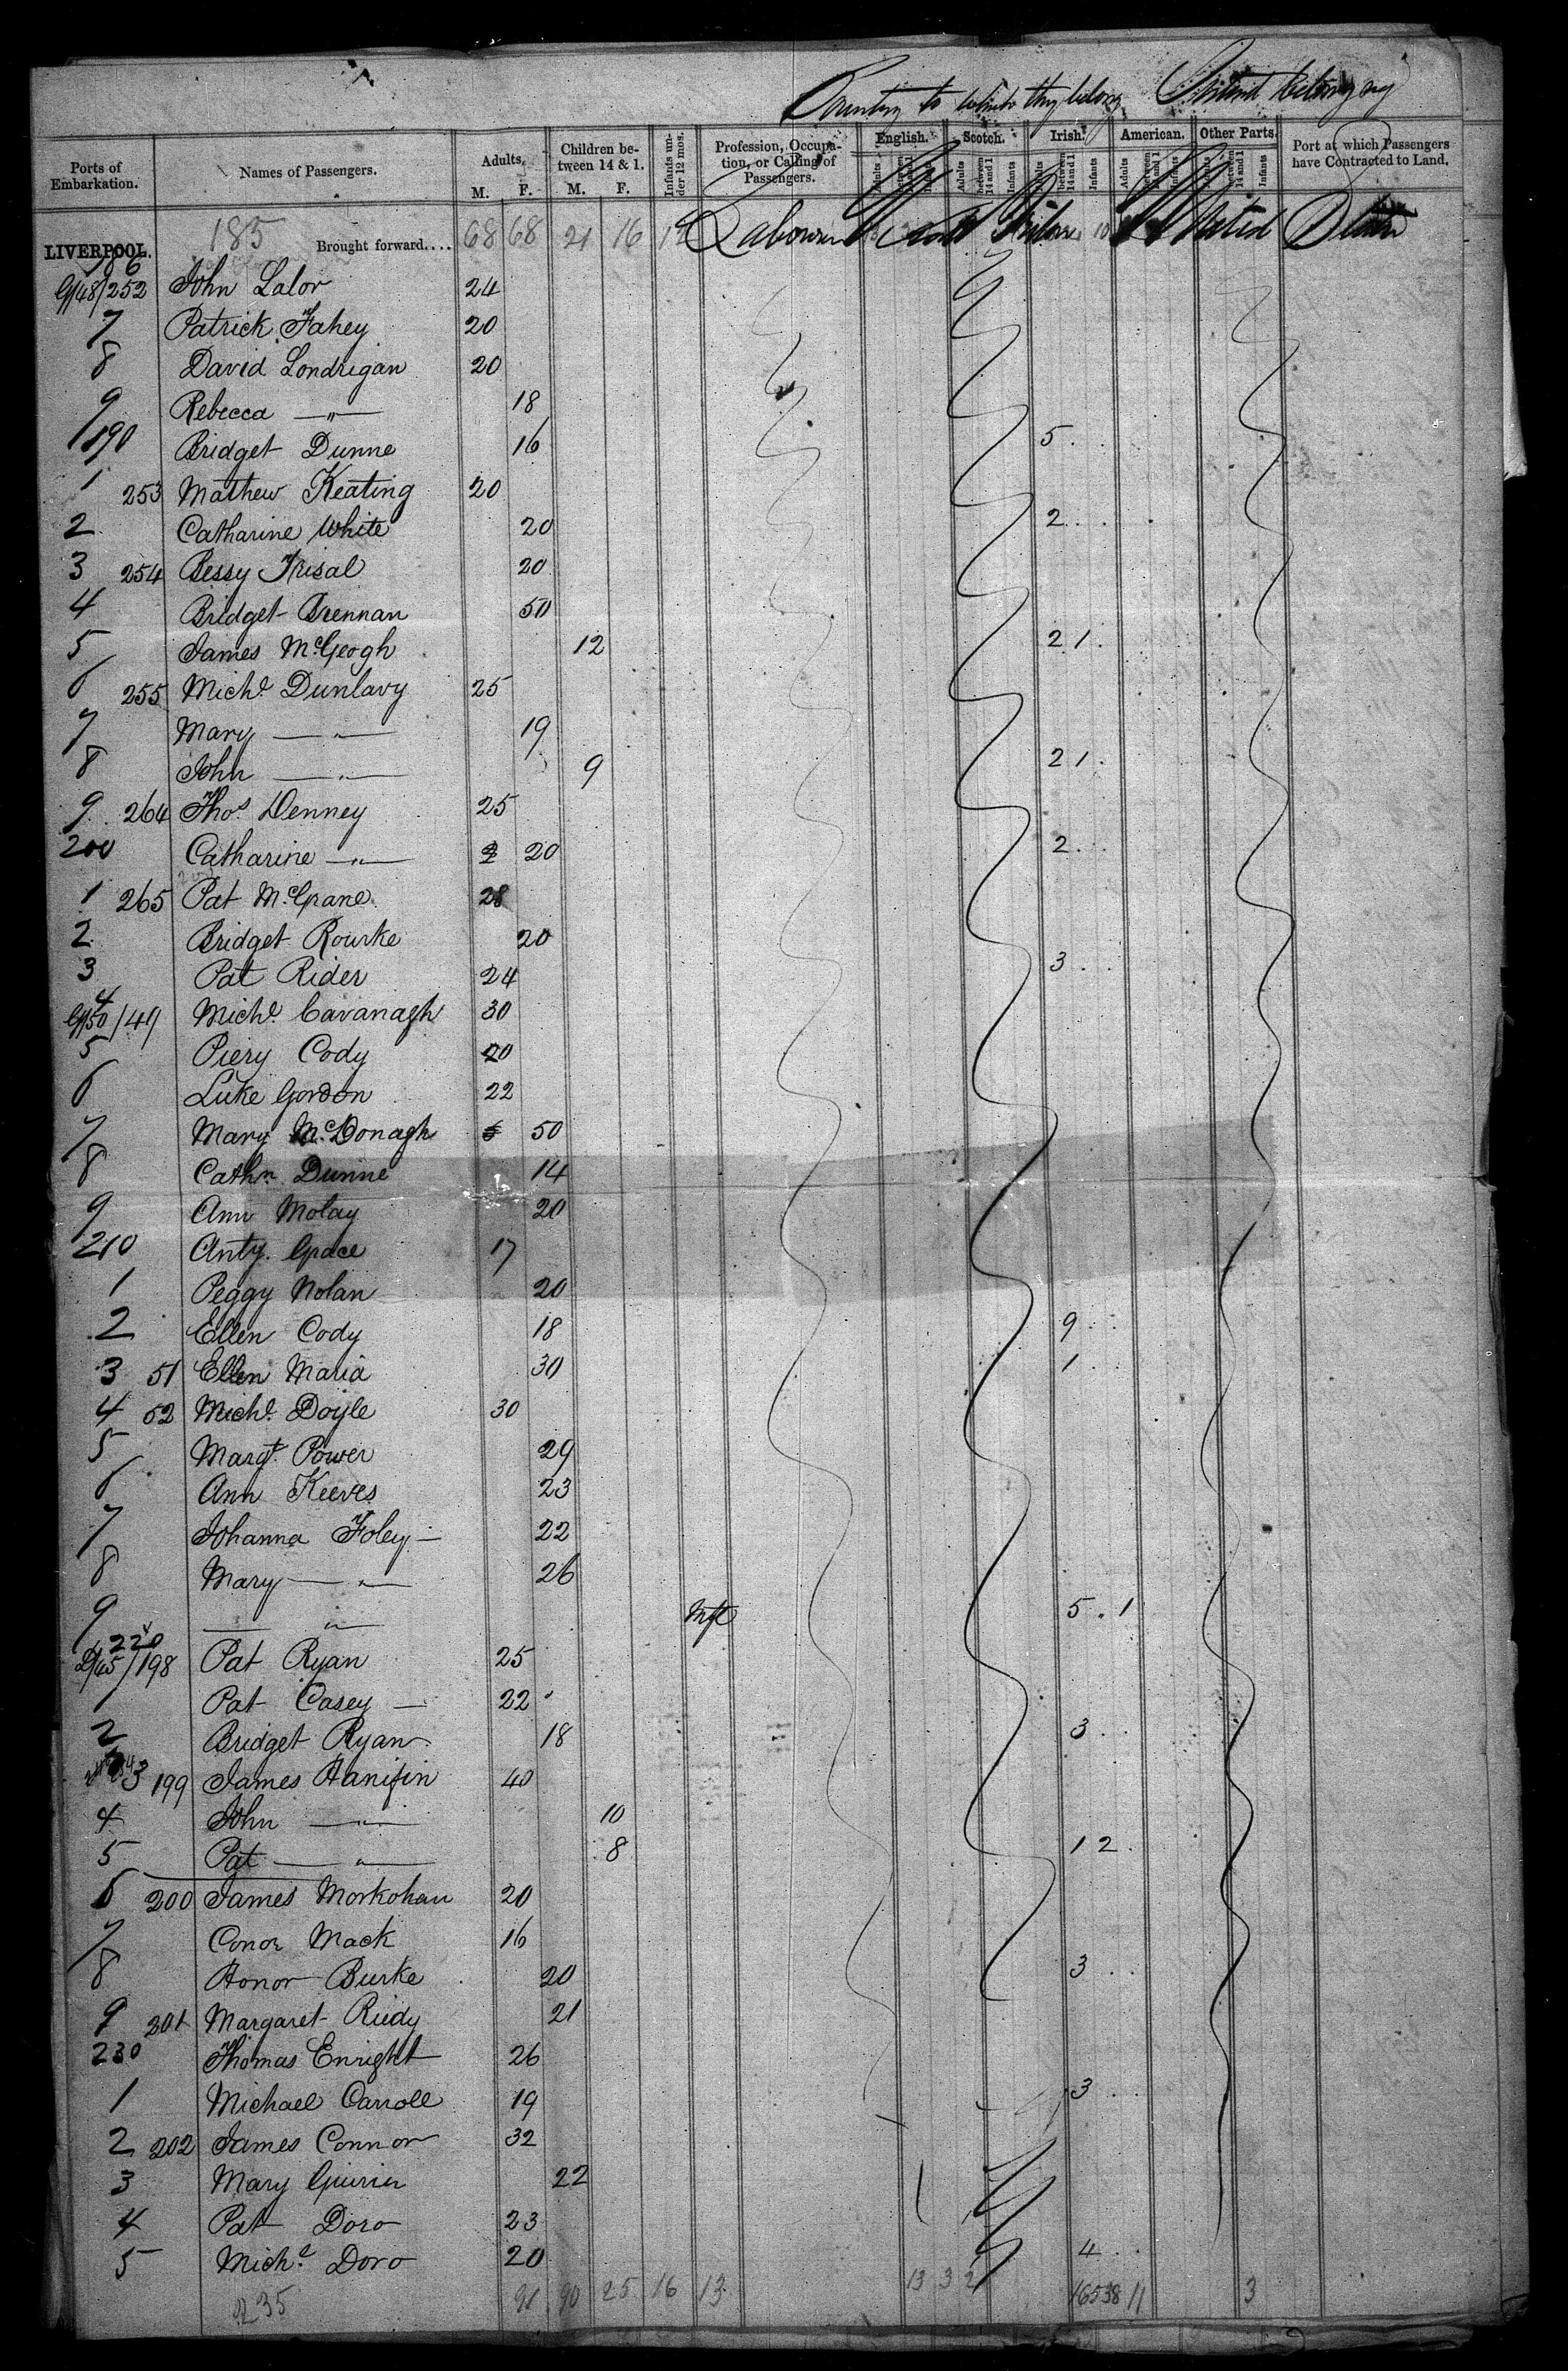 Country to which they belong
Ports of Embarkation.
Names of Passengers.
Adults. M. F.
Children between 14 & 1. M. F.
Infants under 12 mos.
Profession, Occupation, or Calling of Passengers.
English. Adults between 14 and 1
Scotch. Adults between 14 and 1 Infants
Irish. Adults between 14 and 1 Infants
American. Adults between 14 and 1 Infants
Other Parts. Adults between 14 and 1 Infants
Port at which Passengers have Contracted to Land.
LIVERPOOL. 185 Brought forward.... 68 68 21 16 12 Labourers United States
186 252 John Lalor 24
7 Patrick Fahey 20
8 David Londrigan 20
9 Rebecca —"— 18
190 Bridget Dunne 16 5
1 253 Mathew Keating 20
2 Catharine White 20 2
3 254 Bessy Frisal 20
4 Bridget Brennan 50
5 James McGeogh 12 2 1
6 255 Michl Dunlavy 25
7 Mary —"— 19
8 John —"— 9 2 1
9 264 Thos Denney 25
200 Catharine —"— 20 2
1 265 Pat McGrane 28
2 Bridget Rourke 20
3 Pat Rider 24 3
4 /49 Michl Cavanagh 30
5 Piery Cody 20
6 Luke Gordon 22
7 Mary McDonagh 50
8 Cathn Dunne 14
9 Ann Molay 20
210 Anty. Grace 17
1 Peggy Nolan 20
2 Ellen Cody 18 9
3 51 Ellen Maria 30 1
4 52 Michl Doyle 30
5 Margt Power 29
6 Ann Keeves 23
7 Johanna Foley — 22
8 Mary —"— 26
9 —"— Inft 5 . 1
220 /198 Pat Ryan 25
1 Pat Casey — 22
2 Bridget Ryan 18 3
3 199 James Hanifin 40
4 John —"— 10
5 Pat —"— 8 1 2
6 200 James Morkohan 20
7 Conor Mack 16
8 Honor Burke 20 3
9 201 Margaret Riedy 21
230 Thomas Enright 26
1 Michael Carroll 19 3
2 202 James Connor 32
3 Mary Guerin 22
4 Pat Doro 23
5 Michl Doro 20 4
235 91 90 25 16 13 13 3 2 165 38 11 3